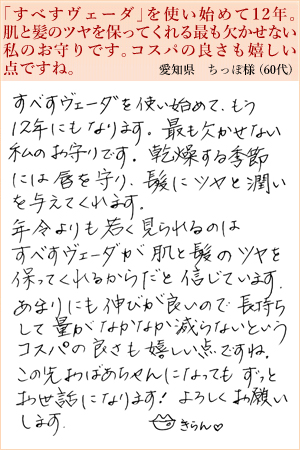 「すべすヴェーダ」を使い始めて12年。
肌と髪のツヤを保ってくれる最も欠かせない
私のお守りです。コスパの良さも嬉しい
点ですね。
愛知県 ちっぽ様（60代）
すべすヴェーダを使い始めて、もう
12年にもなります。最も欠かせない
私のお守りです。乾燥する季節
には唇を守り、髪にツヤと潤い
を与えてくれます。
年令よりも若く見られるのは
すべすヴェーダが肌と髪のツヤを
保ってくれるからだと信じています。
あまりにも伸びが良いので長持ち
して量がなかなか減らないという
コスパの良さも嬉しい点ですね。
この先おばあちゃんになってもずっと
お世話になります！よろしくお願い
します。 きらん♡